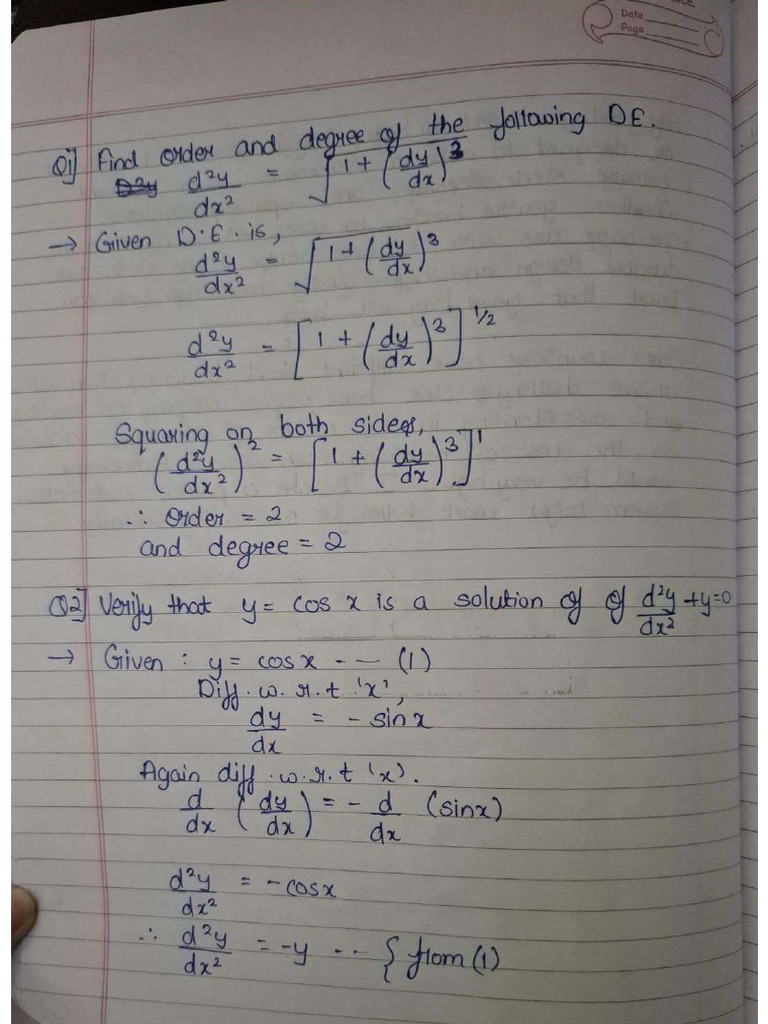 Date
Page
Q1] Find order and degree of the following D.E.
d²y/dx² = √(1 + (dy/dx)³)
→ Given D.E. is,
d²y/dx² = √(1 + (dy/dx)³)
d²y/dx² = [1 + (dy/dx)³]^1/2
Squaring on both sides,
(d²y/dx²)² = [1 + (dy/dx)³]¹
∴ order = 2
and degree = 2
Q2] Verify that y = cos x is a solution of of d²y/dx² + y = 0
→ Given : y = cosx --- (1)
Diff. w.r.t 'x',
dy/dx = - sinx
Again diff. w.r.t 'x).
d/dx (dy/dx) = - d/dx (sinx)
d²y/dx² = - cosx
∴ d²y/dx² = -y --- { from (1)